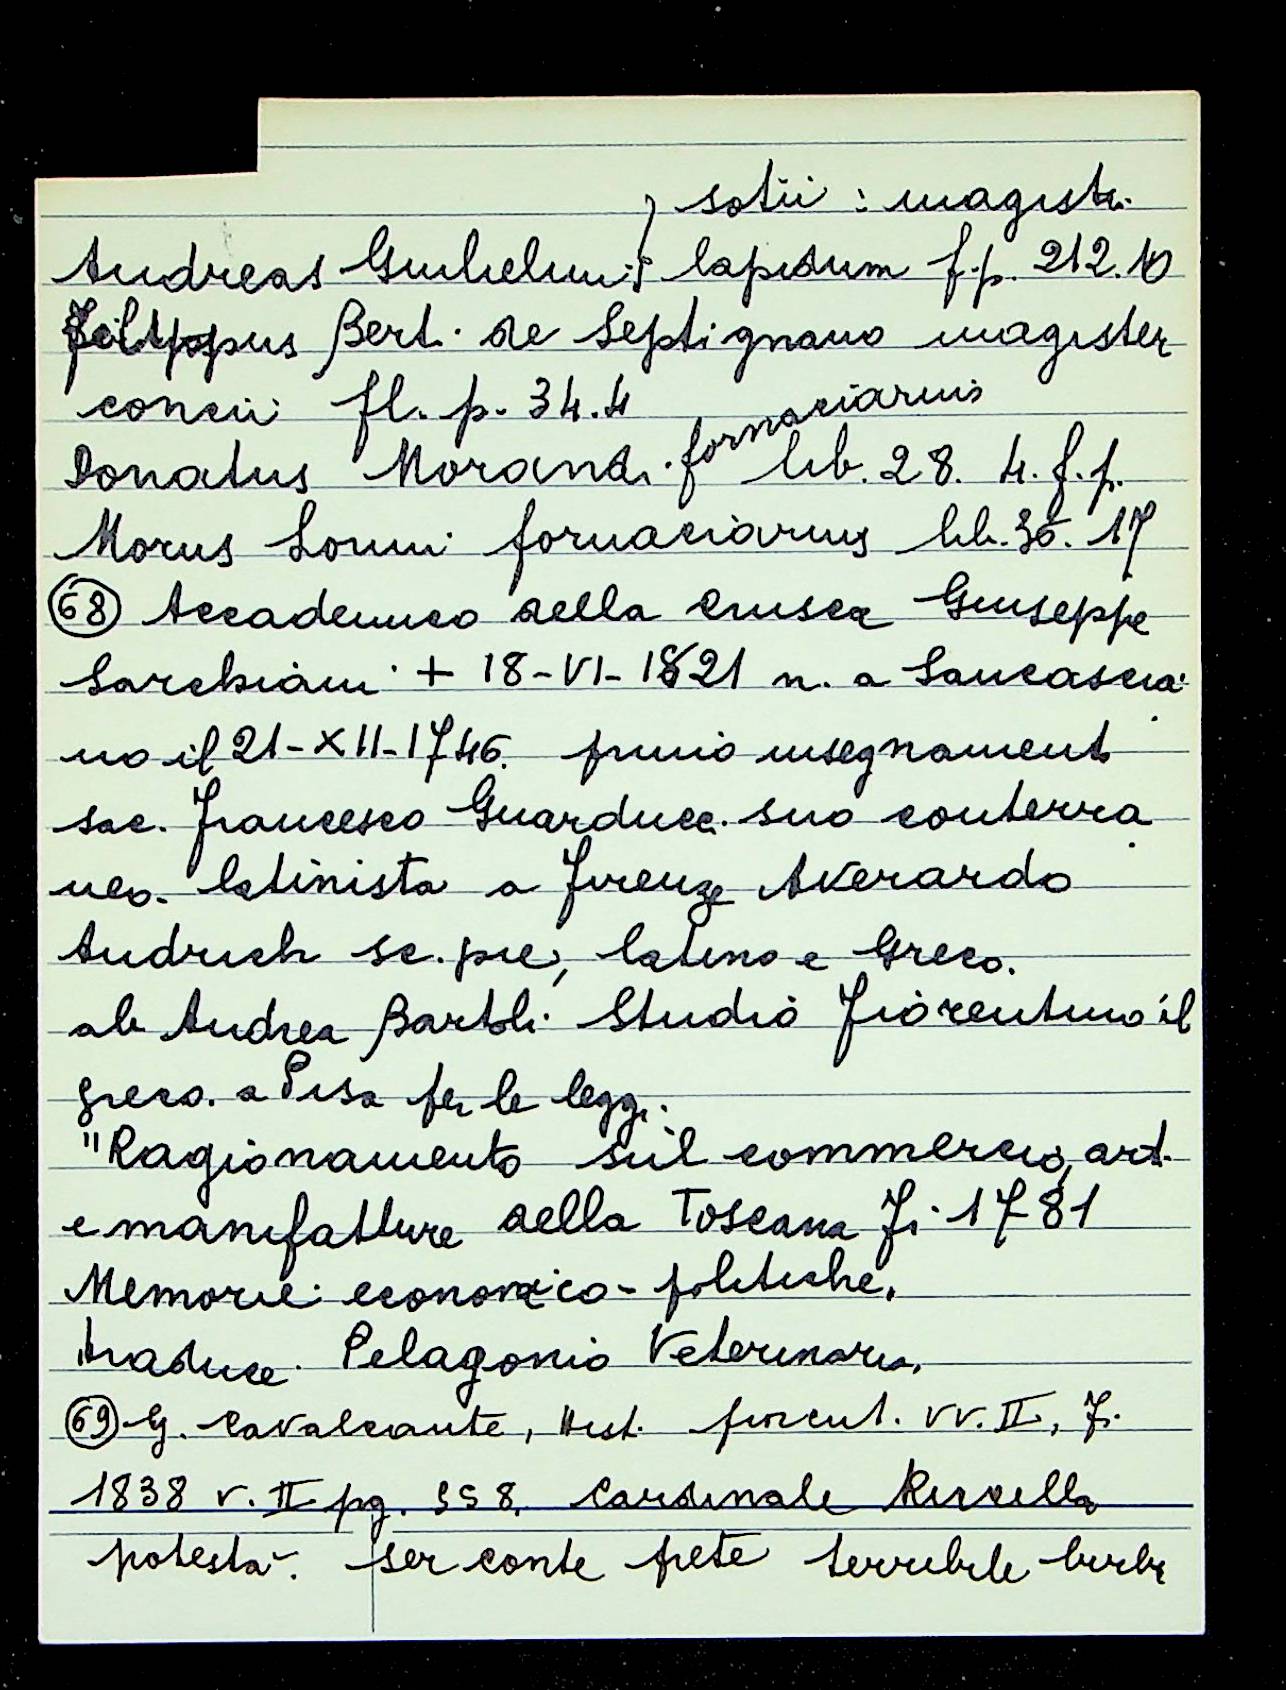 sotii : magistri
Andreas Guilielmi } lapidum f.p. 212.10
Filippus Bert. de Septignano magister
concii fl. p. 34.4
Donatus Morandi fornaciarius lib. 28. 4. f.p.
Morus Lonni fornaciarius lib. 36. 17
68 Accademico della Crusca Giuseppe
Sarchiani + 18-VI-1821 n. a Sancascia
no il 21-XII-1746. primo insegnament
sac. Francesco Guarducci suo conterra
neo. latinista a Firenze Averardo
Audrich sc. pie, latino e Greco.
ab Andrea Bartoli Studio Fiorentino il
greco. a Pisa per le leggi.
"Ragionamento sul commercio, arti
e manifatture della Toscana Fi. 1781
Memorie economico-politiche.
traduce Pelagonio Veterinaria.
69 G. Cavalcante, Hist. fiorent. vv. II, Fi.
1838 v. II pg. 358. Cardinale
potestà. ser conte prete terribile